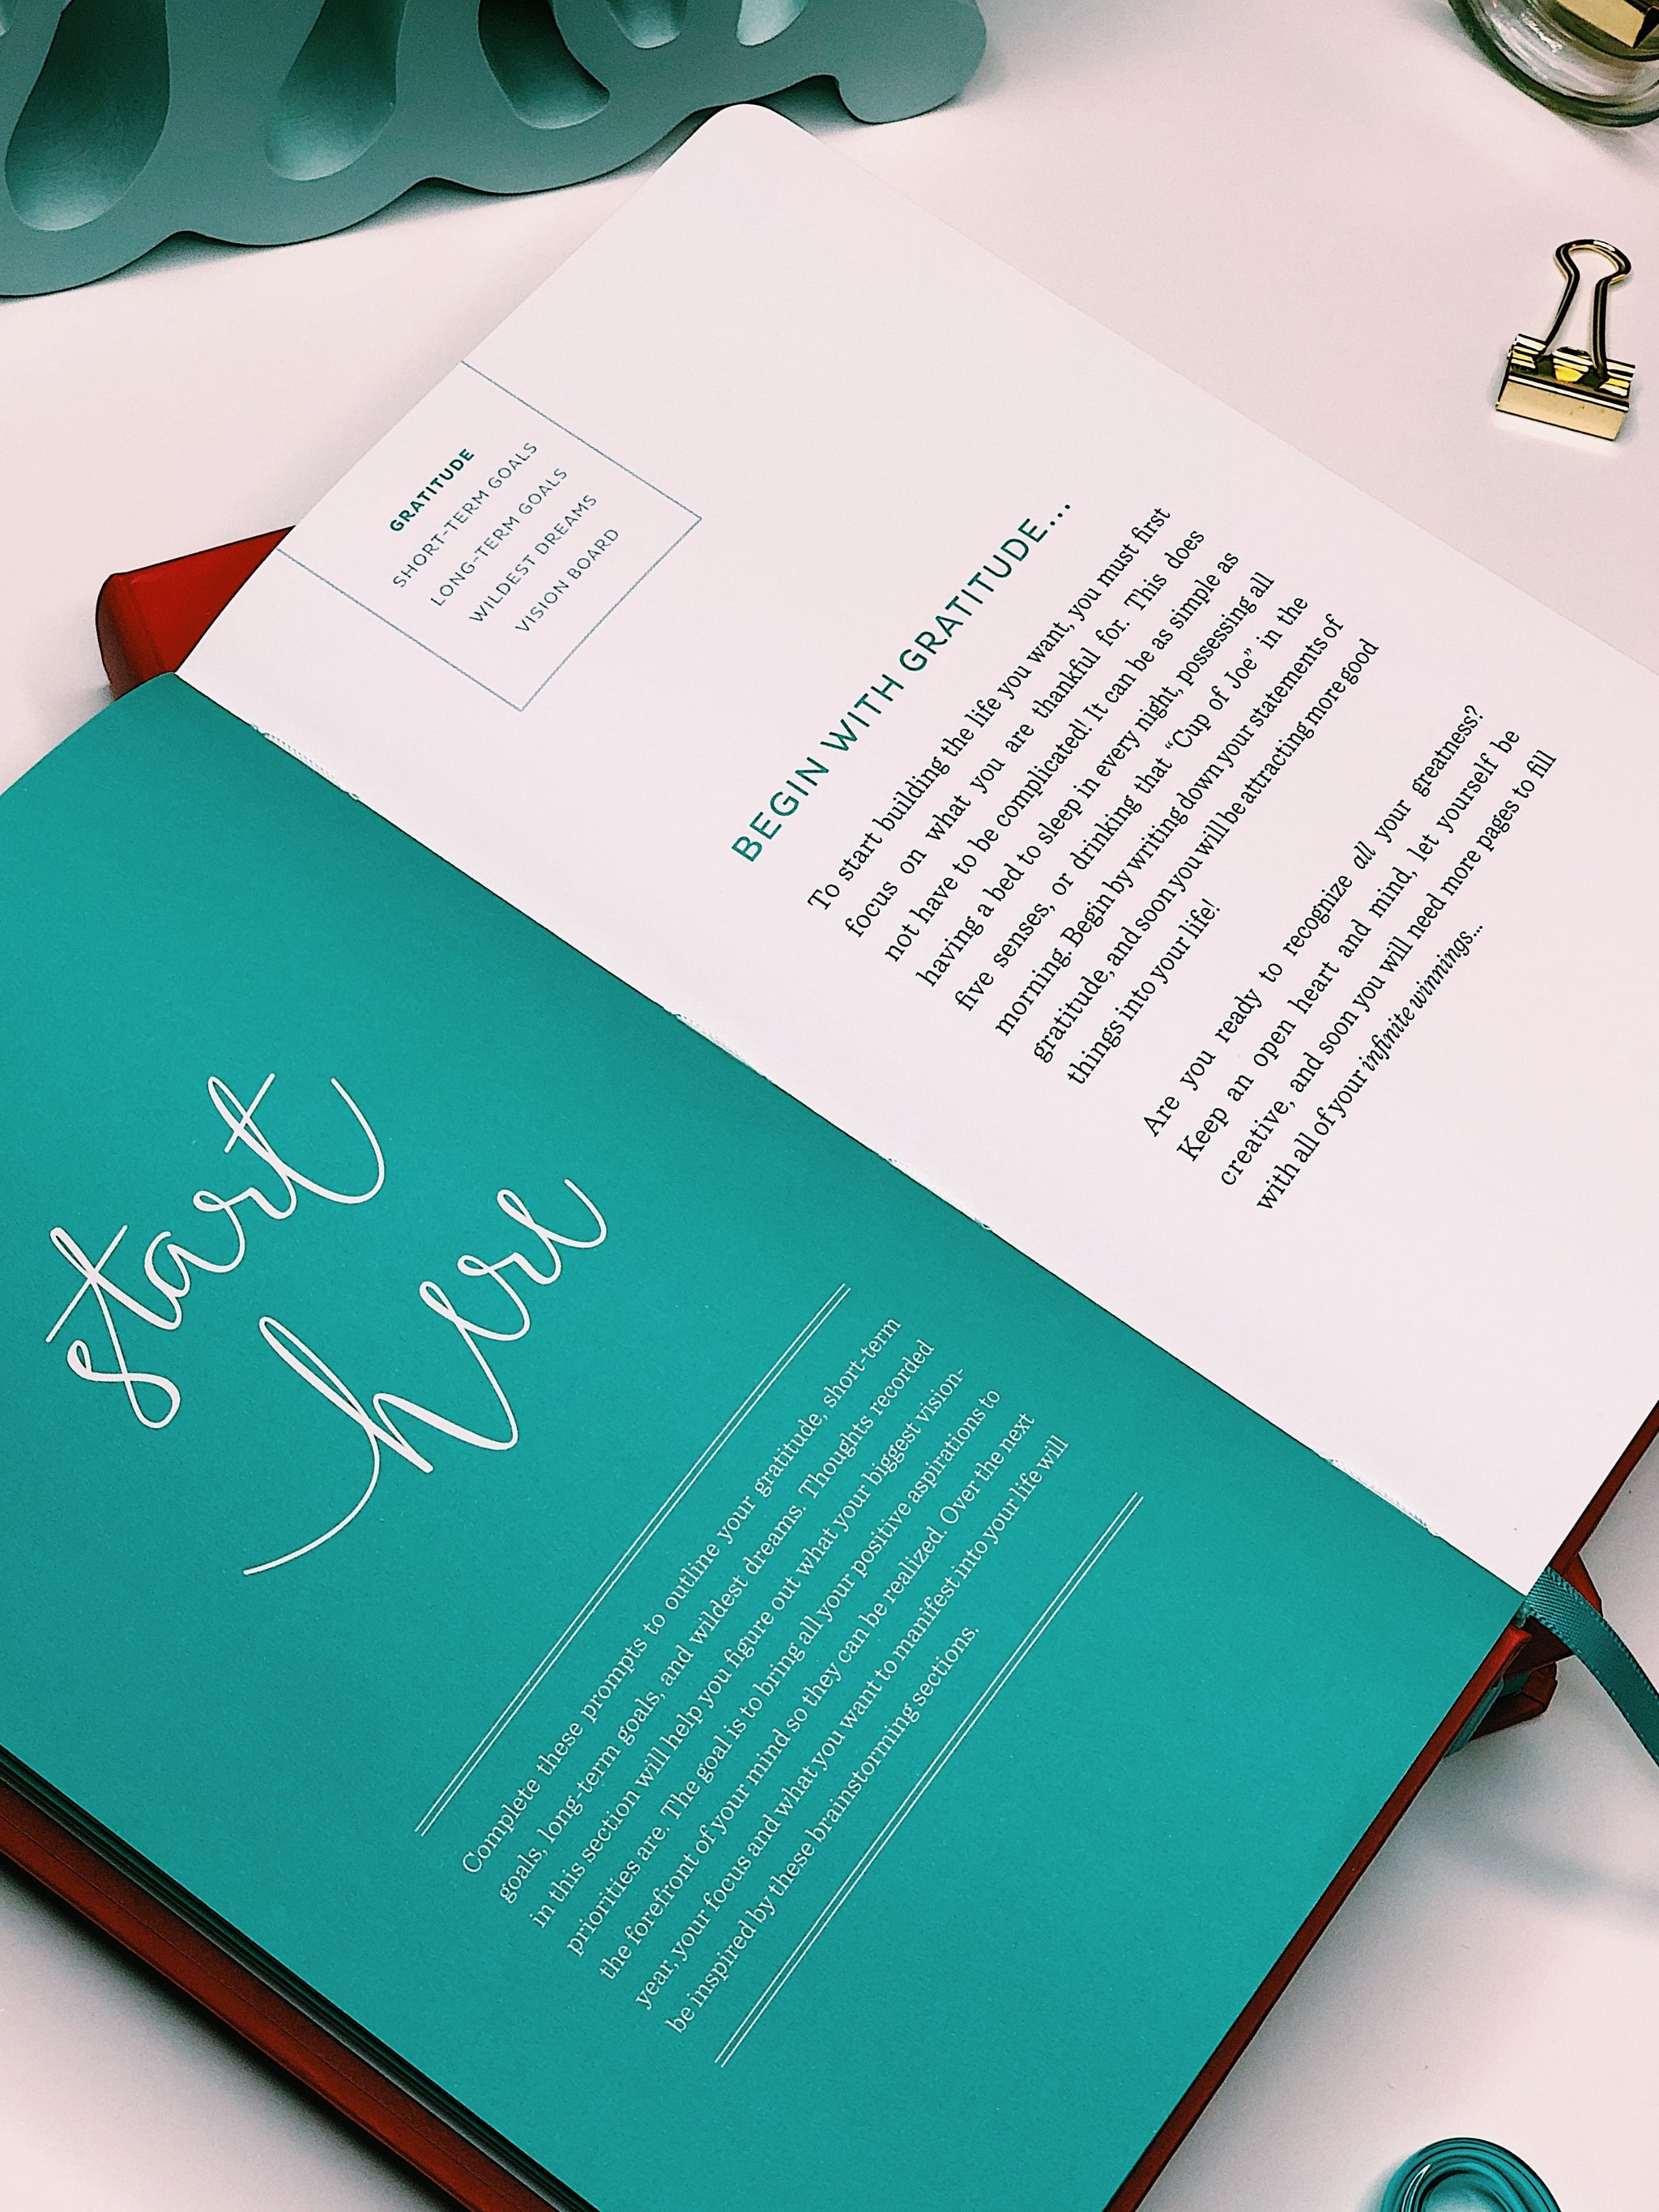 start
here
Complete these prompts to outline your gratitude, short-term
goals, long-term goals, and wildest dreams. Thoughts recorded
in this section will help you figure out what your biggest vision-
priorities are. The goal is to bring all your positive aspirations to
the forefront of your mind so they can be realized. Over the next
year, your focus and what you want to manifest into your life will
be inspired by these brainstorming sections.
GRATITUDE
SHORT-TERM GOALS
LONG-TERM GOALS
WILDEST DREAMS
VISION BOARD
BEGIN WITH GRATITUDE...
To start building the life you want, you must first
focus on what you are thankful for. This does
not have to be complicated! It can be as simple as
having a bed to sleep in every night, possessing all
five senses, or drinking that “Cup of Joe” in the
morning. Begin by writing down your statements of
gratitude, and soon you will be attracting more good
things into your life!
Are you ready to recognize all your greatness?
Keep an open heart and mind, let yourself be
creative, and soon you will need more pages to fill
with all of your infinite winnings...